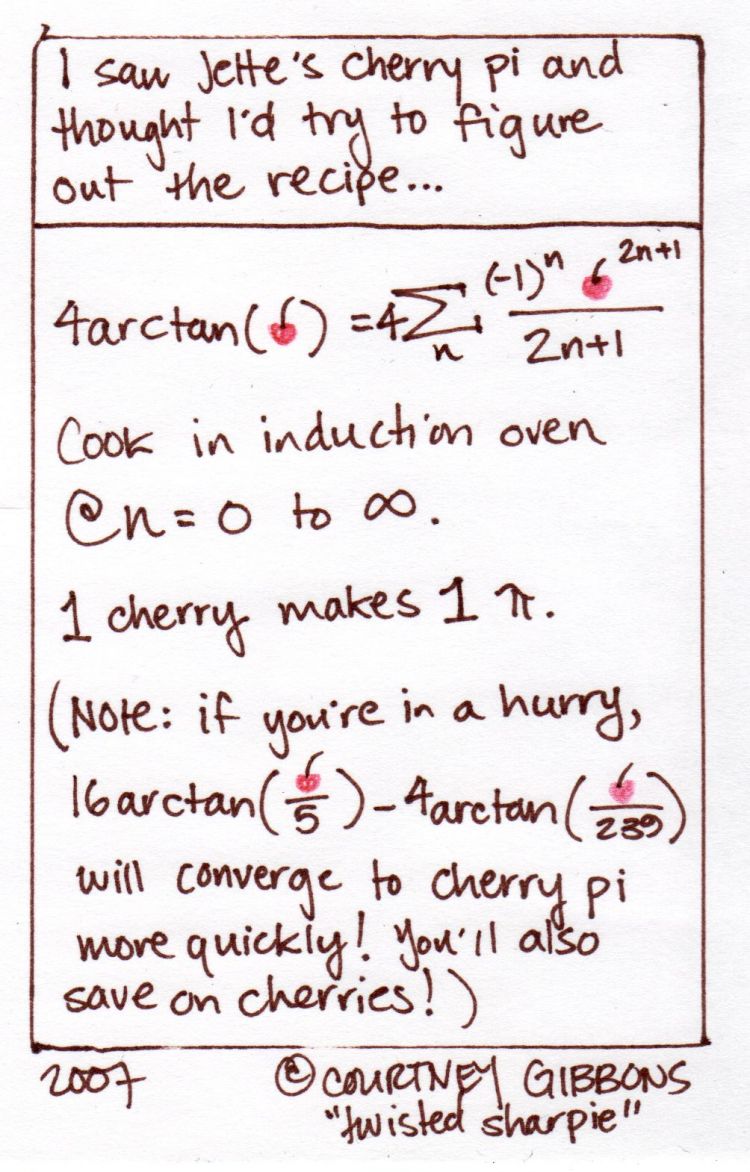 I saw Jette's cherry pi and
thought I'd try to figure
out the recipe...
4arctan(🍒) = 4∑ₙ (-1)ⁿ 🍒²ⁿ⁺¹ / 2n+1
Cook in induction oven
@ n = 0 to ∞.
1 cherry makes 1 π.
(Note: if you're in a hurry,
16arctan(🍒/5) - 4arctan(🍒/239)
will converge to cherry pi
more quickly! You'll also
save on cherries!)
2007 © COURTNEY GIBBONS
"twisted sharpie"